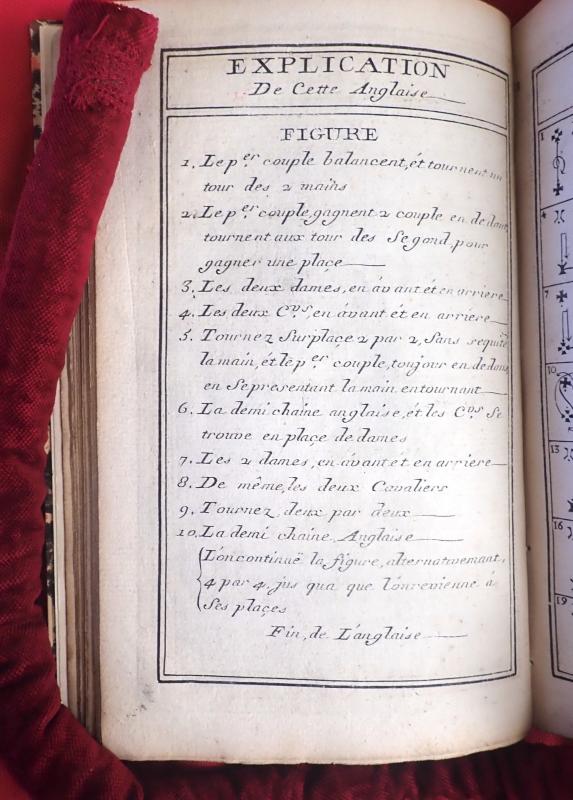 EXPLICATION
De Cette Anglaise
FIGURE
1. Le p.er couple balancent, ét tournent un
tour des 2 mains
2. Le p.er couple, gagnent 2 couple en dedant
tournent aux tour des Segond, pour
gagner une plaçe
3. Les deux dames, en ávant ét en arriere
4. Les deux C.ds, en ávant ét en arriere
5. Tournez Surplaçe 2 par 2, Sans
la main, ét le p.er couple, toujour en dedans,
en Sepresentant la main entournant
6. La demi chaine anglaise, ét les C.ds Se
trouve en plaçe de dames
7. Les 2 dames, en ávant ét en arriere
8. De même, les deux Cavaliers
9. Tournez, deux par deux
10. La demi chaine, Anglaise
L'on continuë la figure, alternativemant,
4 par 4, jus qua que l'on revienne á
Ses plaçes
Fin, de L'anglaise
1
4
7
10
13
16
19